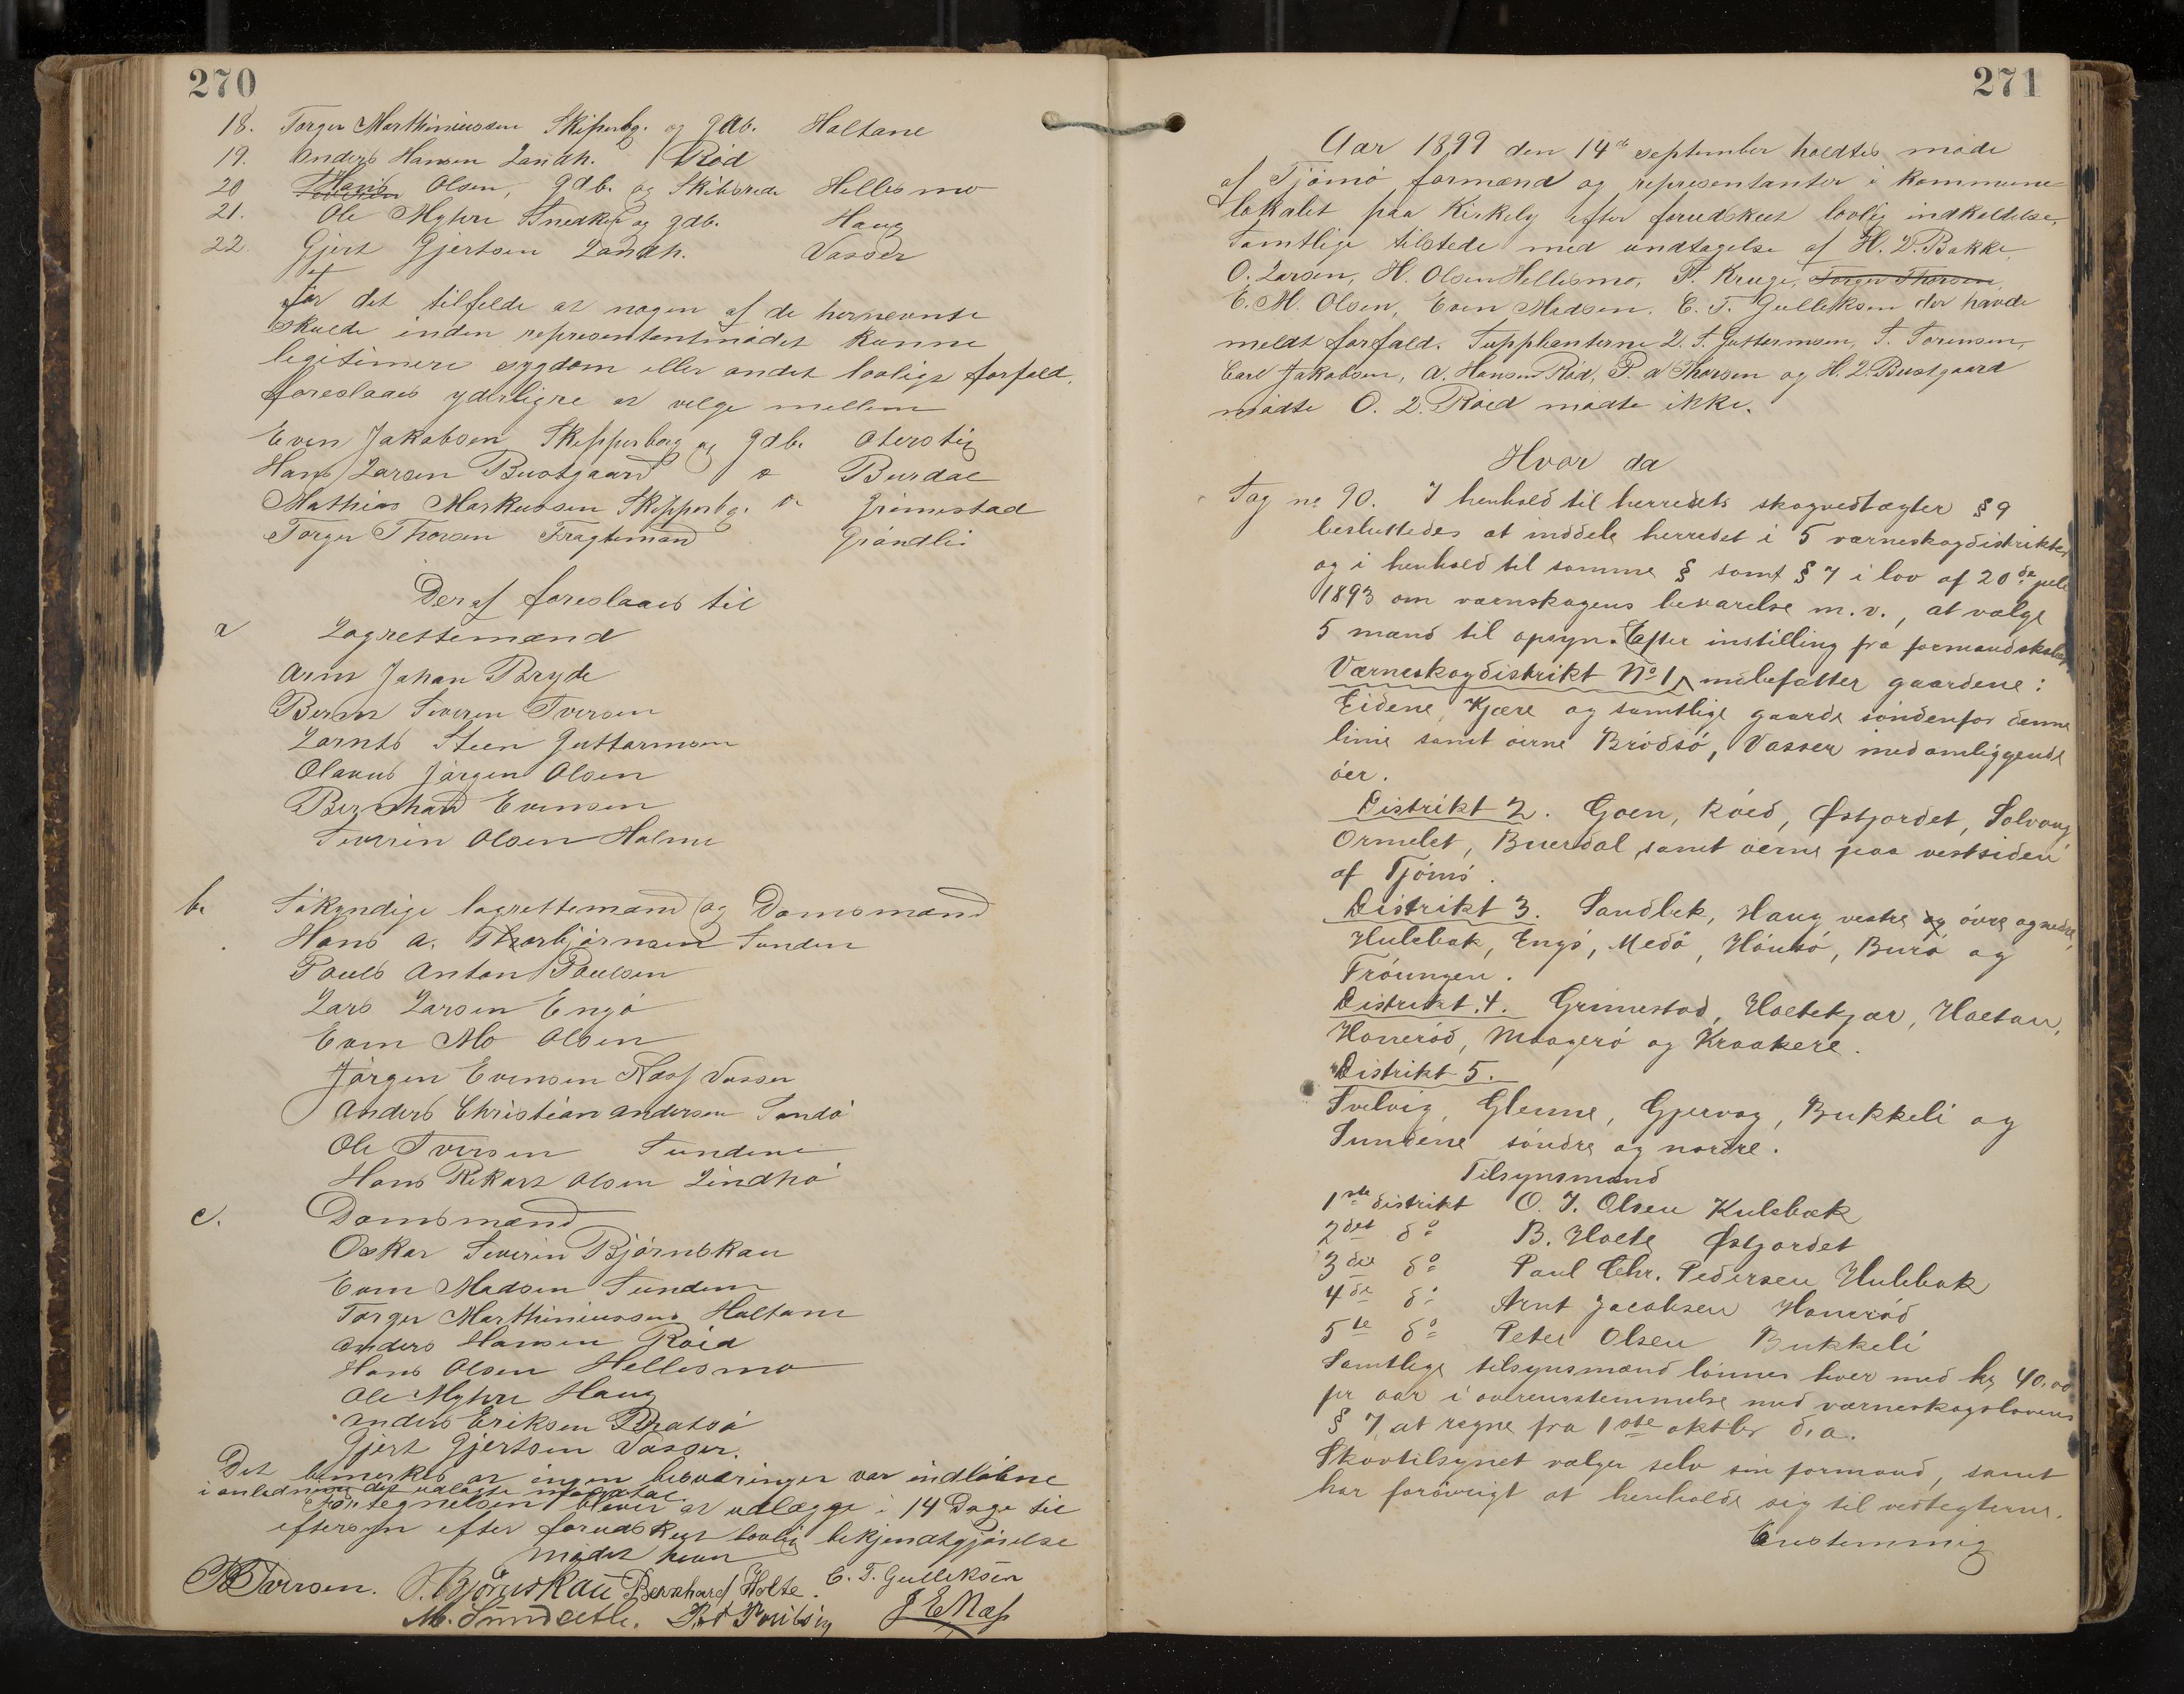 270
18. Torger Marthiniussen Skipsrbg. og gdb. Haltane
19. Anders Hansen Landh. Röd
20 Hans Olsen, gdb. og Skibsrede Hellesmo
21. Ole Myhre Snedker og gdb. Haug
22. Gjert Gjertsen Landh. Vasser
For det tilfelde at nogen af de hernevnte
skulde inden representantmödet kunne
legitimere sygdom eller andet lovligt forfald,
foreslaaes yderligre at velge mellem
Even Jakobsen Skipperborg og gdb. Oterstig
Hans Larsen Bustgaard " Burdal
Mathias Markussen Skipperbg. " Grimestad
Torger Thorsen Fragtemand Gröndli
Deraf foreslaaes til
a Lagrettemænd
Arnt Johan Bryde
Bernt Severin Iversen
Lornts Steen Guttormsen
Olavus Jörgen Olsen
Bernhard Evensen
Severin Olsen Holme
b. Sökyndige lagrettemænd og Domsmænd
Hans A. Thorbjörnsen Sunden
Pauls Anton Paulsen
Lars Larsen Engö
Even Mo Olsen
Jörgen Evensen Næss Vasser
Anders Christian Andersen Sandö
Ole Iversen Sundene
Hans Rikart Olsen Lindhö
c. Domsmænd
Oskar Severin Björnskau
Even Madsen Sundene
Torger Marthiniussen Haltane
Anders Hansen Röid
Hans Olsen Hellesmo
Ole Myhre Haug
Anders Eriksen Bratsö
Gjert Gjertsen Vasser.
Det bemerkes at ingen besværinger var indlöbne
i anledning det udlagte mandtal.
Fortegnelsen bliver at udlægge i 14 Dage til
eftersyn efter forudskeet lovlig bekjendtgjörelse
mödet hevet
B Larsen. O. Björnskau Bernhard Holte. C. T. Gulliksen
M. Sundseth. J E Næss
271
Aar 1899 den 14de september holdtes möde
af Tjömö formænd og representanter i kommune-
lokalet paa Kirkely efter forudskeet lovlig indkaldelse,
Samtlige tilstede med undtagelse af H. L. Bakke,
O. Larsen, H. Olsen Hellesmo, P. Kruge, Torger Thorsen,
E. M. Olsen, Even Madsen, C. T. Gulliksen der havde
meldt forfald. Supplianterne L. S. Guttormsen, T. Sörensen,
Carl Jakobsen, A. Hansen Röd, P. A Thorsen og H. L. Bustgaard
mödte O. L. Röed mödte ikke.
Hvor da
Sag no 90. I henhold til herredets skogvedtægter § 9
besluttedes at inddele herredet i 5 værneskogdistrikter
og i henhold til samme § samt § 7 i lov af 20de juli
1893 om værnskogens bevarelse m.v., at vælge
5 mænd til opsyn. Efter instilling fra formandskabet
Værneskogdistrikt No 1 indbefatter gaardene:
Eidene, Kjære og samtlige gaarde söndenfor denne
linie samt öerne Brödsö, Vasser med omliggende
öer.
Distrikt 2. Goen, Röed, Østjordet, Solvang
Ormelet, Buerdal samt öerne paa vestsiden
af Tjömö.
Distrikt 3. Sandbek, Haug vestre og övre og nedre,
Hulebak, Engö, Medö, Hönsö, Burö og
Tröungen.
Distrikt 4. Grimestad, Holtekjær, Holtan,
Honeröd, Maagerö og Kraakere.
Distrikt 5.
Svelvig, Glenne, Gjervaag, Bukkeli og
Sundene söndre og nordre.
Tilsynsmænd
1ste distrikt O. J. Olsen Kulebak
2det do B. Holte Østjordet
3die do Paul Chr. Pedersen Hulebak
4de do Arnt Jacobsen Honeröd
5te do Peter Olsen Bukkeli
Samtlige tilsynsmænd lönnes hver med kr 40.00
pr aar i overensstemmelse med værneskogslovens
§ 7, at regne fra 1ste oktbr d.a.
Skovtilsynet vælger selv sin formand, samt
har forövrigt at henholde sig til vedtegterne.
Enstemmig